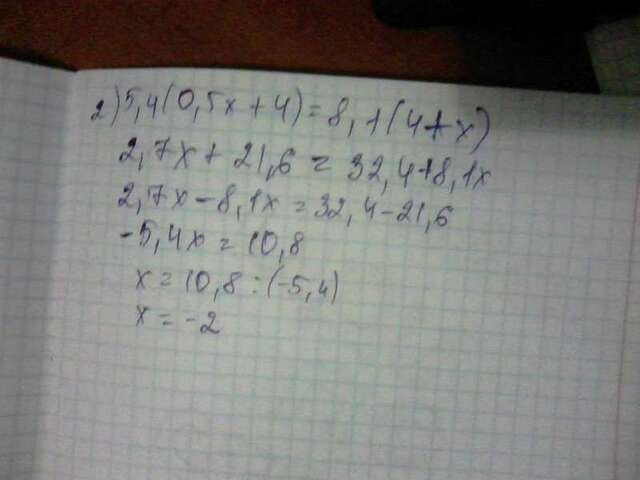 2) 5,4(0,5x + 4) = 8,1(4 + x)
2,7x + 21,6 = 32,4 + 8,1x
2,7x - 8,1x = 32,4 - 21,6
-5,4x = 10,8
x = 10,8 : (-5,4)
x = -2